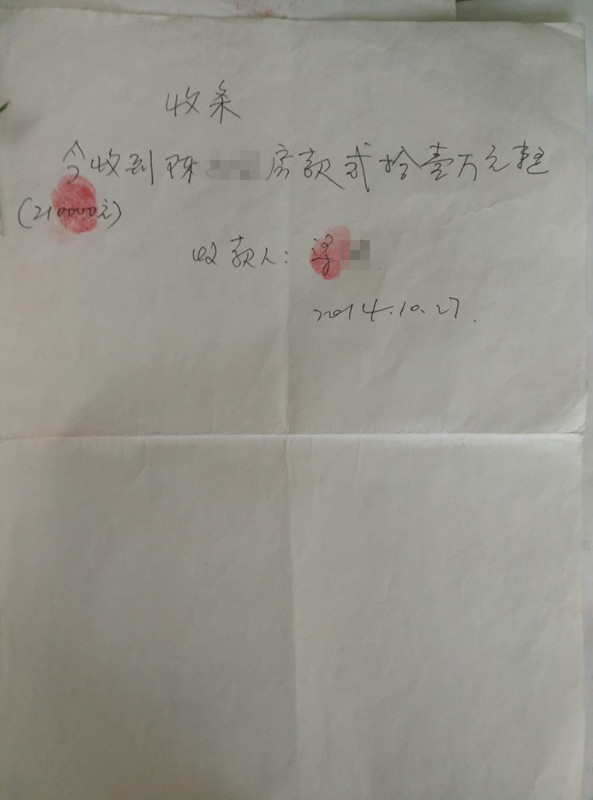 收条
今收到陈 房款贰拾壹万元整
(210000元)
收款人: 梁
2014.10.27.